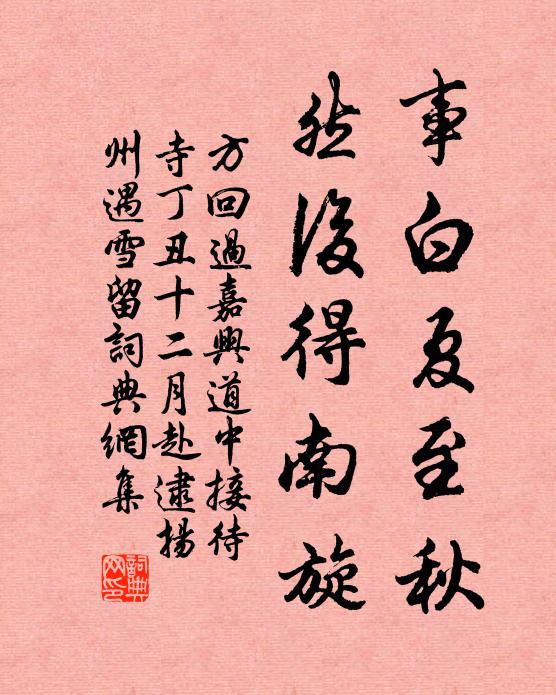 事白夏至秋
然後得南旋
方回過嘉興道中接待
寺丁丑十二月赴逮揚
州遇雪留詞典網集
詞典网印